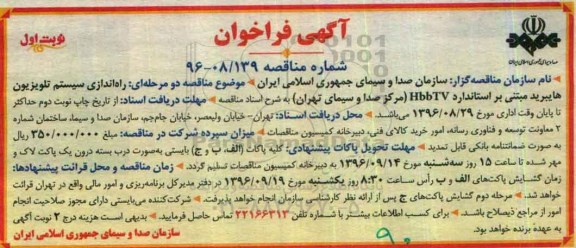 آگهی فراخوان
نوبت اول
شماره مناقصه ۹۶-۰۸/۱۳۹
نام سازمان مناقصه‌گزار: سازمان صدا و سیمای جمهوری اسلامی ایران ◄ موضوع مناقصه دو مرحله‌ای: راه‌اندازی سیستم تلویزیون
هایبرید مبتنی بر استاندارد HbbTV (مرکز صدا و سیمای تهران) به شرح اسناد مناقصه ◄ مهلت دریافت اسناد: از تاریخ چاپ نوبت دوم حداکثر
تا پایان وقت اداری مورخ ۱۳۹۶/۰۸/۲۹ می‌باشد. ◄ محل دریافت اسناد: تهران- خیابان ولیعصر، خیابان جام‌جم، سازمان صدا و سیما، ساختمان شماره
۲ معاونت توسعه و فناوری رسانه، امور خرید کالای فنی، دبیرخانه کمیسیون مناقصات ◄ میزان سپرده شرکت در مناقصه: مبلغ ۳۵۰/۰۰۰/۰۰۰ ریال
به صورت ضمانتنامه بانکی قابل تمدید ◄ مهلت تحویل پاکات پیشنهادی: کلیه پاکات (الف، ب و ج) بایستی به‌صورت درب بسته درون یک پاکت لاک و
مهر شده تا ساعت ۱۵ روز سه‌شنبه مورخ ۱۳۹۶/۰۹/۱۴ به دبیرخانه کمیسیون مناقصات تسلیم گردد. ◄ زمان مناقصه و محل قرائت پیشنهادها:
زمان گشایش پاکت‌های الف و ب رأس ساعت ۸:۳۰ روز یکشنبه مورخ ۱۳۹۶/۰۹/۱۹ در دفتر مدیرکل برنامه‌ریزی و امور مالی واقع در تهران قرائت
خواهد شد. ◄ مرحله دوم گشایش پاکت‌های ج پس از ارائه نظر کارشناسی سازمان انجام خواهد پذیرفت ◄ شرکت‌کننده می‌بایستی دارای مجوز صلاحیت انجام
امور از مراجع ذیصلاح باشد. ◄ برای کسب اطلاعات بیشتر با شماره تلفن ۲۲۱۶۶۳۱۳ تماس حاصل فرمایید. ◄ بدیهی است هزینه درج ۲ نوبت آگهی
به عهده برنده خواهد بود.
سازمان صدا و سیمای جمهوری اسلامی ایران